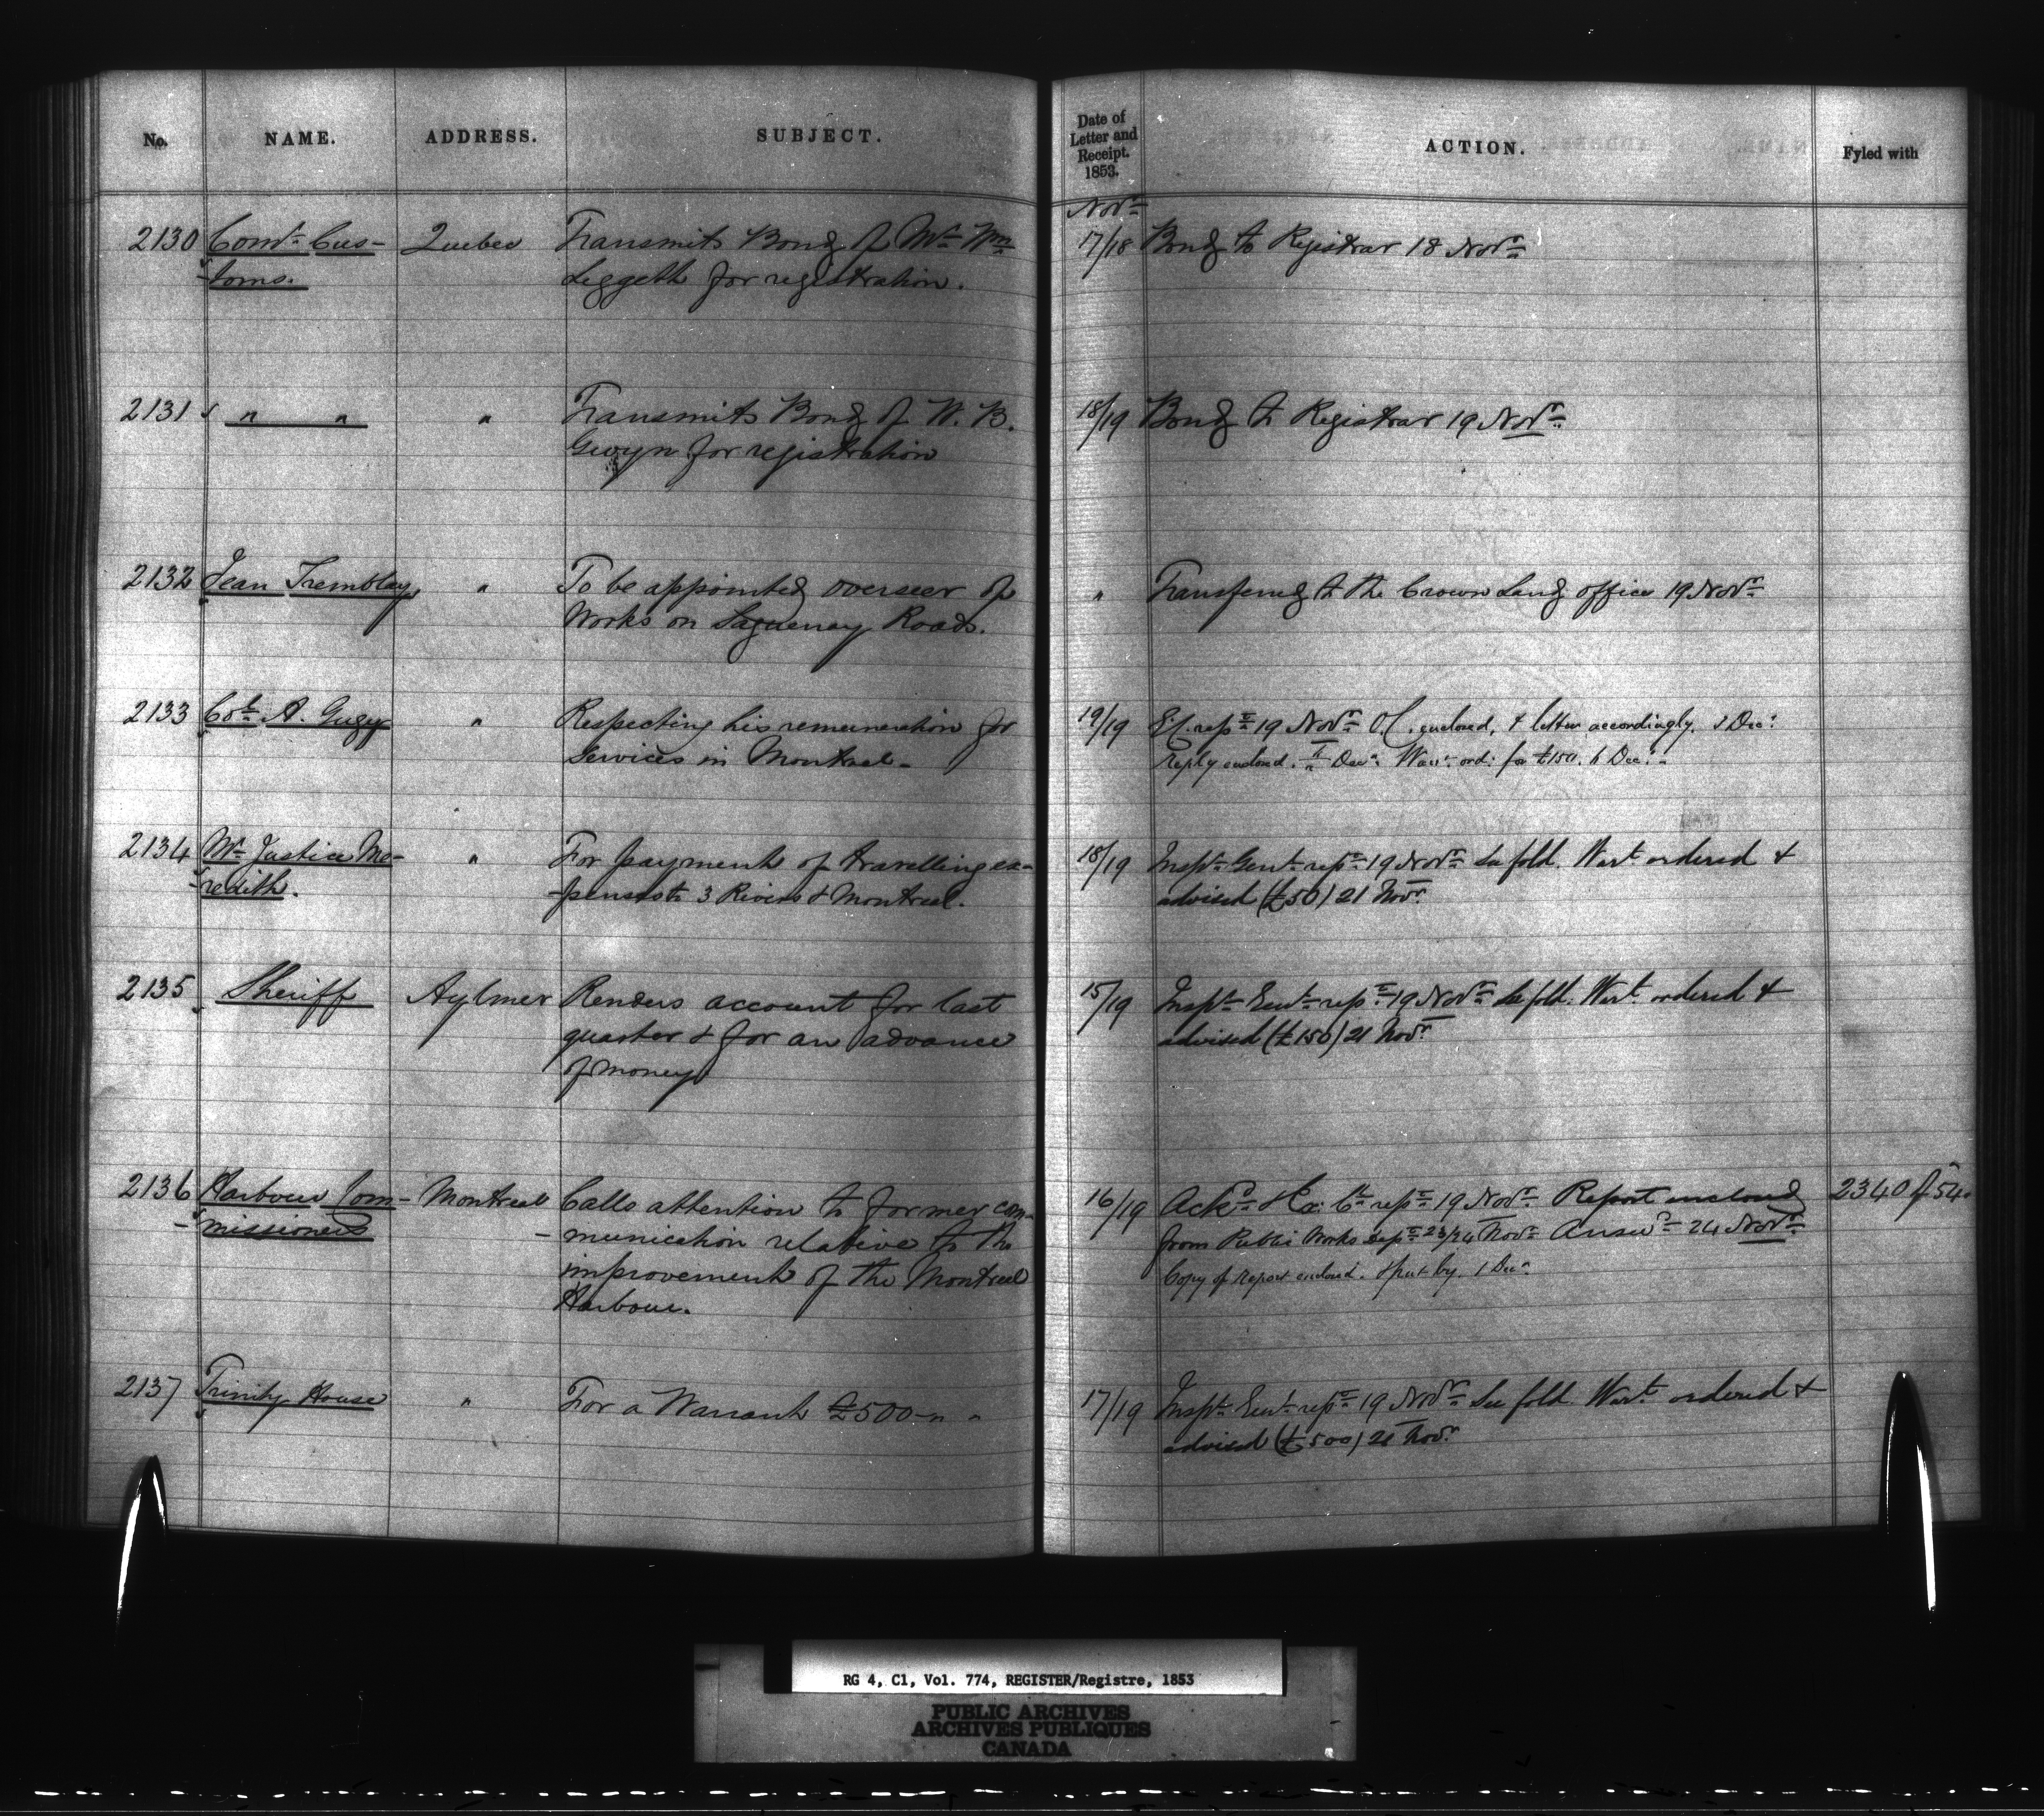 No. NAME. ADDRESS. SUBJECT.
Date of Letter and Receipt. 1853. ACTION. Fyled with
Novr
2130 Comr Cus- Quebec Transmits Bond of Mr Wm 17/18 Bond to Registrar 18 Novr
-toms. Leggeth for registration.
2131 " " " Transmits Bond of W. B. 18/19 Bond to Registrar 19 Novr
Gwyn for registration
2132 Jean Tremblay " To be appointed overseer of " Transferred to the Crown Land office 19 Novr
Works on Saguenay Roads.
2133 Col. A. Gugy " Respecting his remuneration for 19/19 19 Novr O.C. enclosed, & letter accordingly. Decr
Services in Montreal- reply enclosed. Decr Warrt ord: for £150. 6 Decr
2134 Mr Justice Me- " For payment of travelling ex- 18/19 Inspr Genl repn 19 Novr See fold. Warrt ordered &
-redith. -penses to 3 Rivers & Montreal. advised (£50) 21 Novr
2135 Sheriff Aylmer Renders account for last 15/19 Inspr Genl repn 19 Novr See fold. Warrt ordered &
quarter & for an advance advised (£150) 21 Novr
of money
2136 Harbour Com- Montreal Calls attention to former com- 16/19 Ackd 19 Novr Report enclosed 2340 of 54.
-missioners -munication relative to the from Public Works 23/24 Novr Answd 24 Novr
improvement of the Montreal Copy of report enclosed. & put by. 1 Decr
Harbour.
2137 Trinity House " For a Warrant £500 - " - 17/19 Inspr Genl repn 19 Novr See fold. Warrt ordered &
advised (£500) 21 Novr
RG 4, C1, Vol. 774, REGISTER/Registre, 1853
PUBLIC ARCHIVES
ARCHIVES PUBLIQUES
CANADA